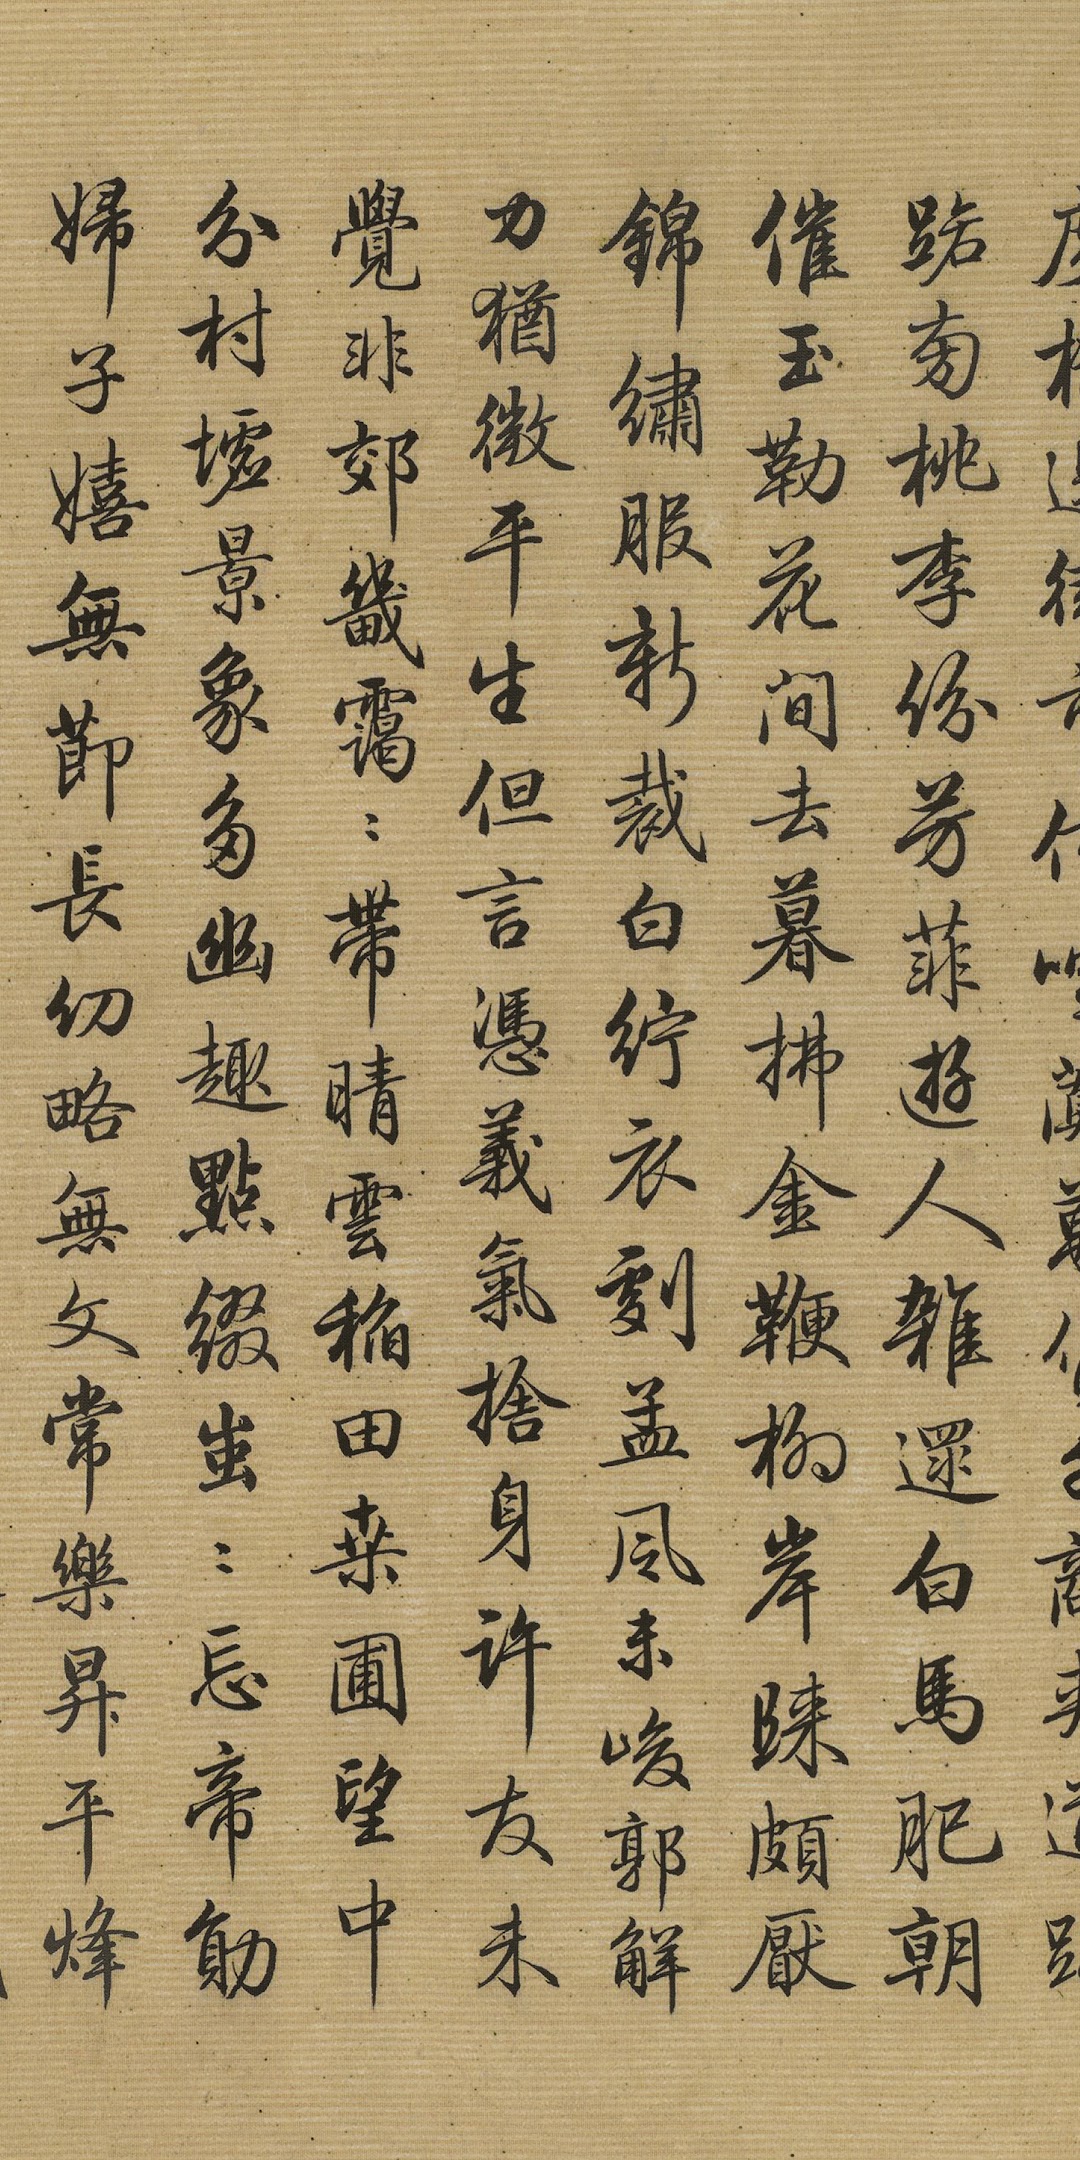 路旁桃李紛芳菲遊人雜遝白馬肥朝
催玉勒花間去暮拂金鞭柳岸歸頗厭
錦繡服新裁白紵衣劇孟風未峻郭解
力猶微平生但言憑義氣捨身許友未
覺非郊畿靄〻帶晴雲稻田桑圃望中
分村墟景象多幽趣點綴蚩〻忘帝勛
婦子嬉無節長幼略無文常樂昇平烽